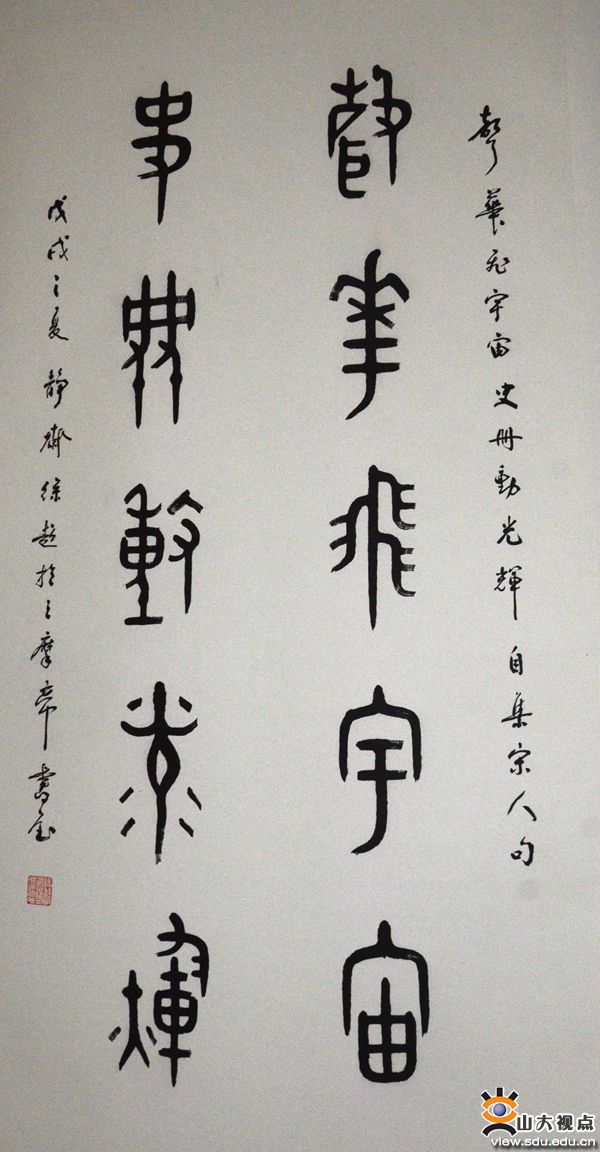 聲華飛宇宙史冊動光輝自集宋人句
聲華飛宇宙
史冊動光輝
戊戌之夏靜齋徐超於摩帝書室
山大视点
view.sdu.edu.cn